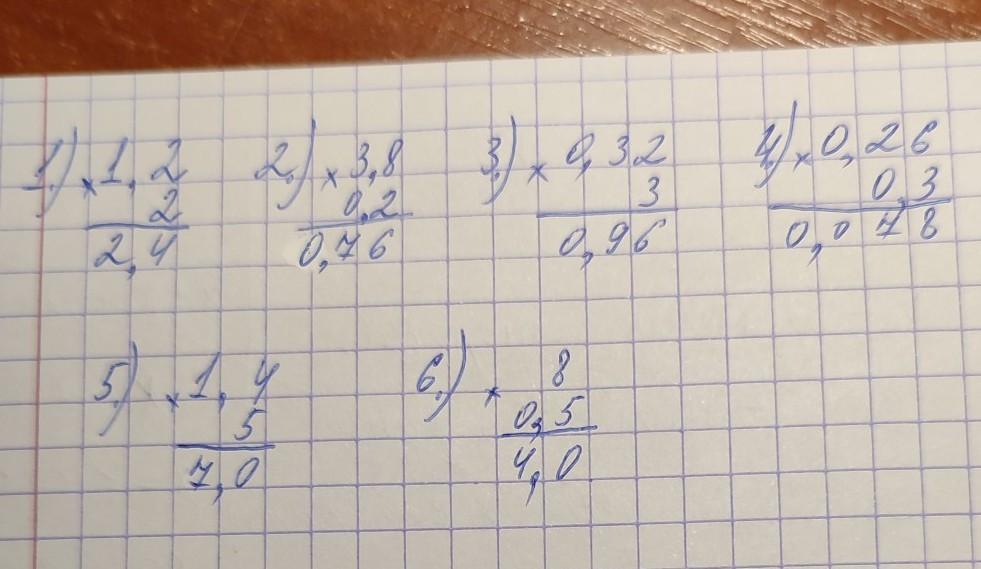 1.) × 1,2 2.) × 3,8 3.) × 0,32 4.) × 0,26
2 0,2 3 0,3
2,4 0,76 0,96 0,078
5.) × 1,4 6.) × 8
5 0,5
7,0 4,0